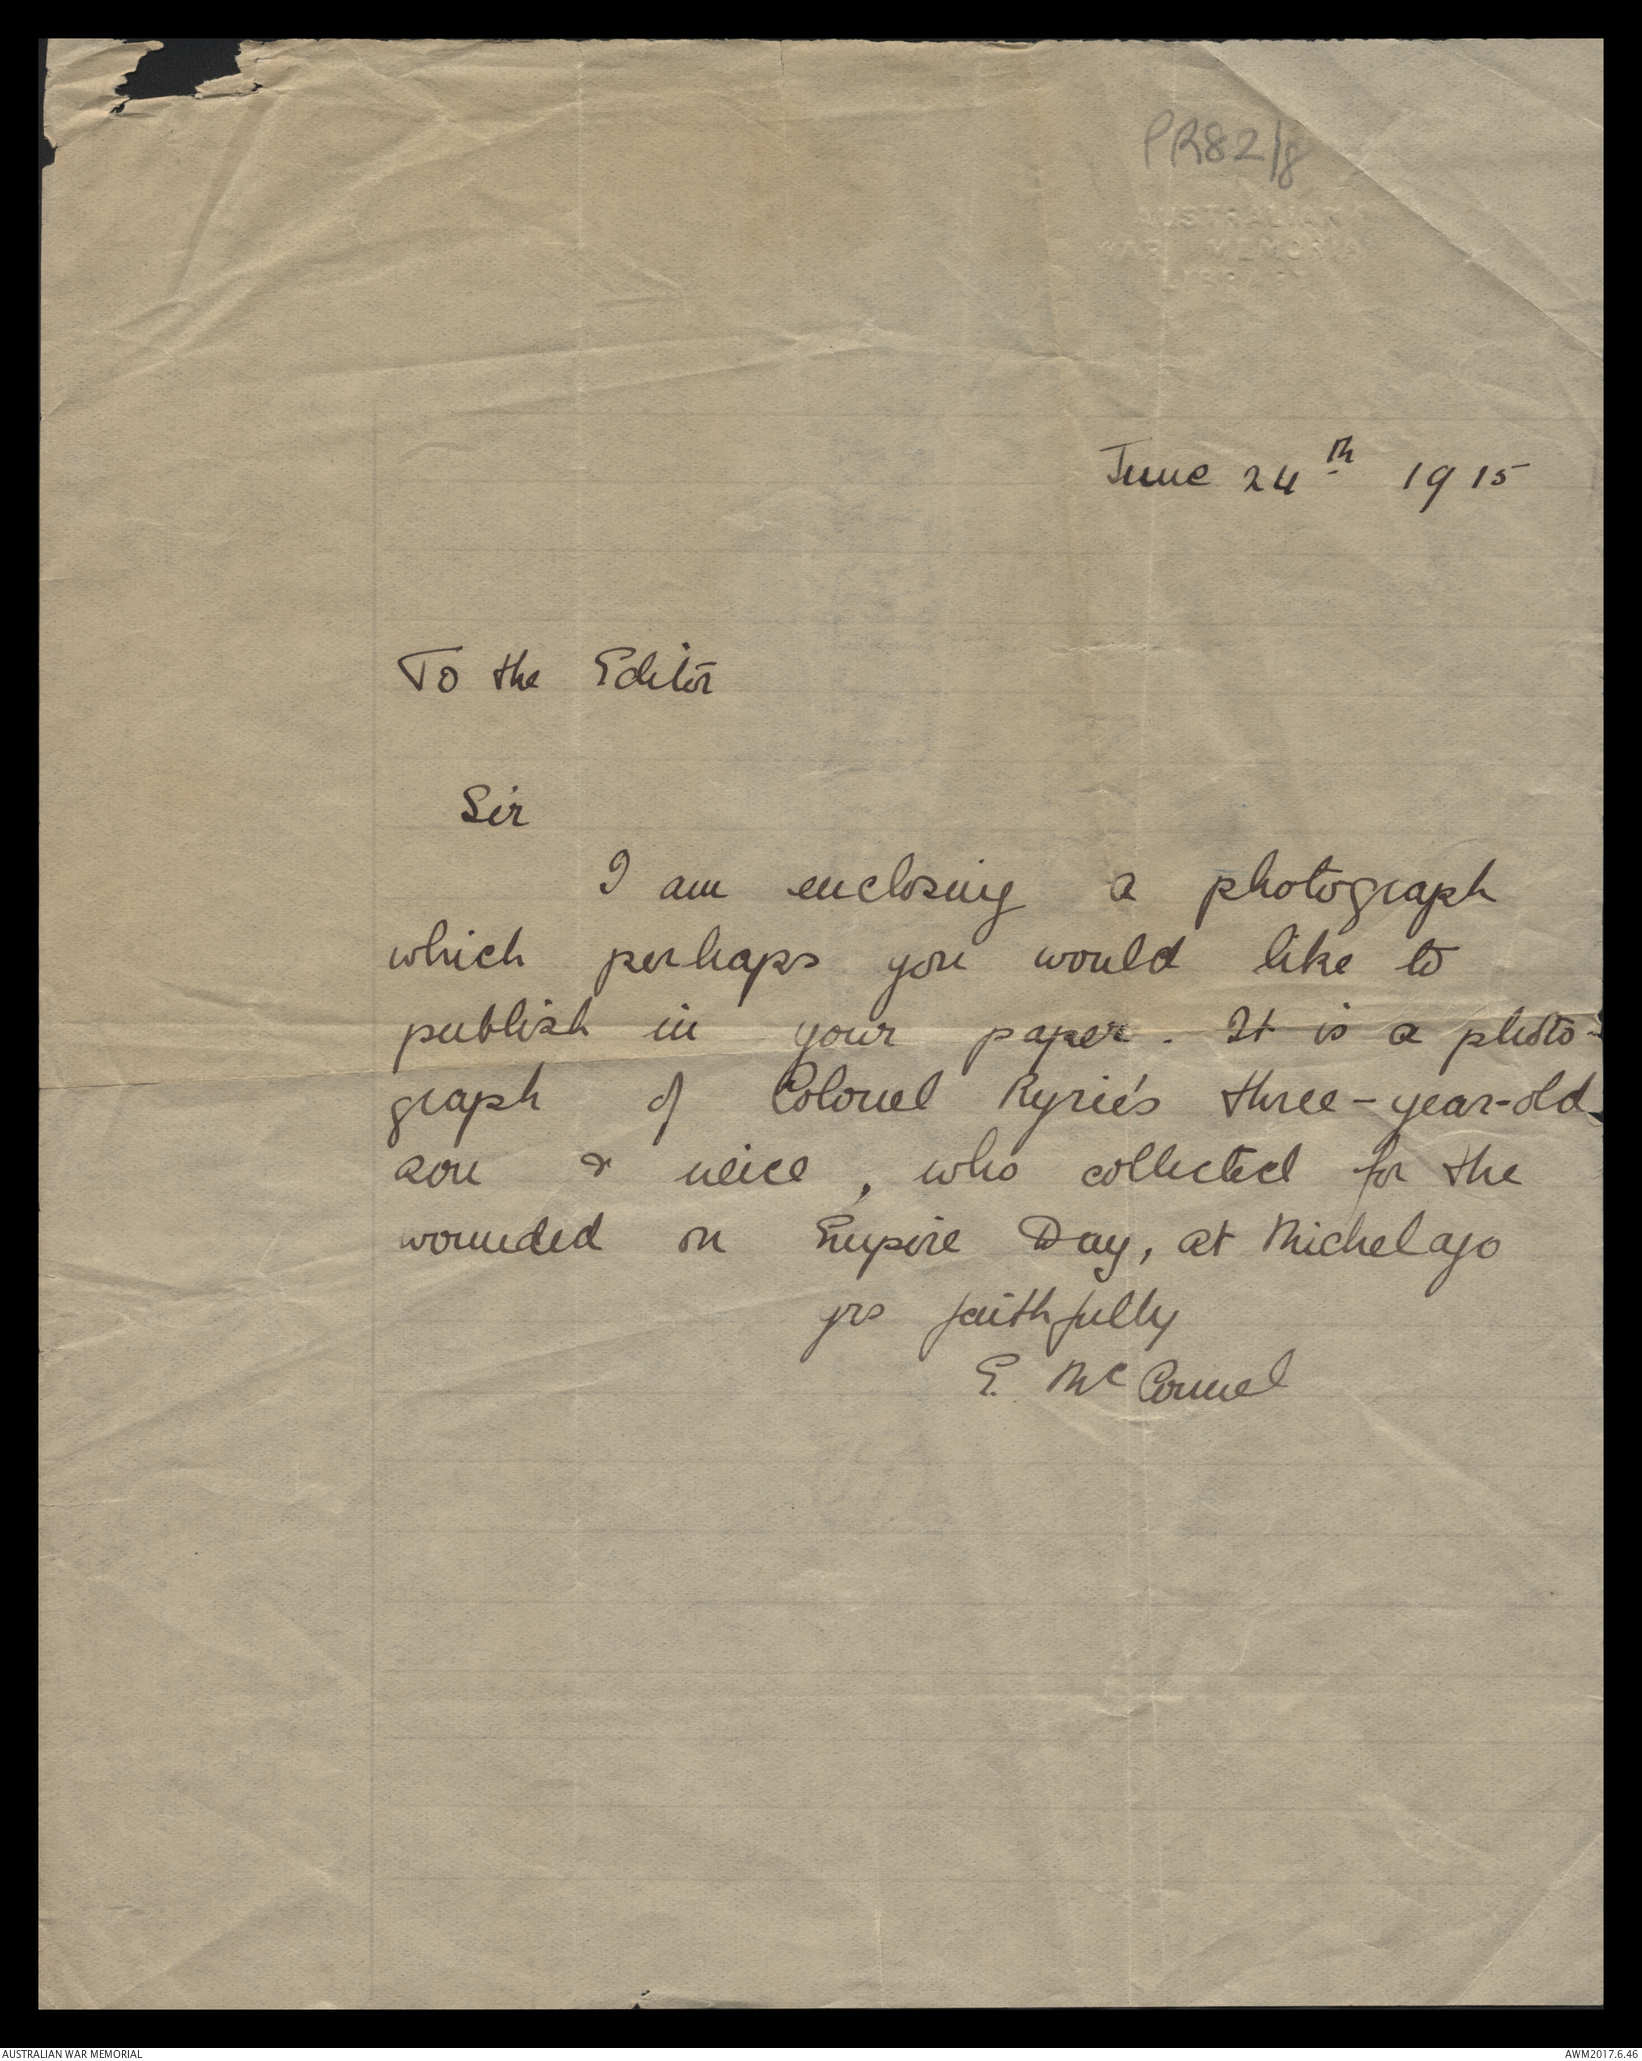 PR82/8
AUSTRALIAN
WAR MEMORIAL
June 24th 1915
To the Editor
Sir
I am enclosing a photograph
which perhaps you would like to
publish in your paper. It is a photo-
graph of Colonel Ryrie's three-year-old
son & neice, who collected for the
wounded on Empire Day, at Michelago
yrs faithfully
E. McConnel
AUSTRALIAN WAR MEMORIAL
AWM2017.6.46